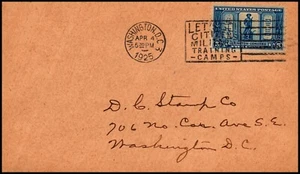 WASHINGTON, D.C.
APR 4
1925
LET
CITI
MILIT
TRAINING
CAMPS
UNITED STATES POSTAGE
5 5
D. C. Stamp Co
706 No. Car. Ave S.E.
Washington D.C.